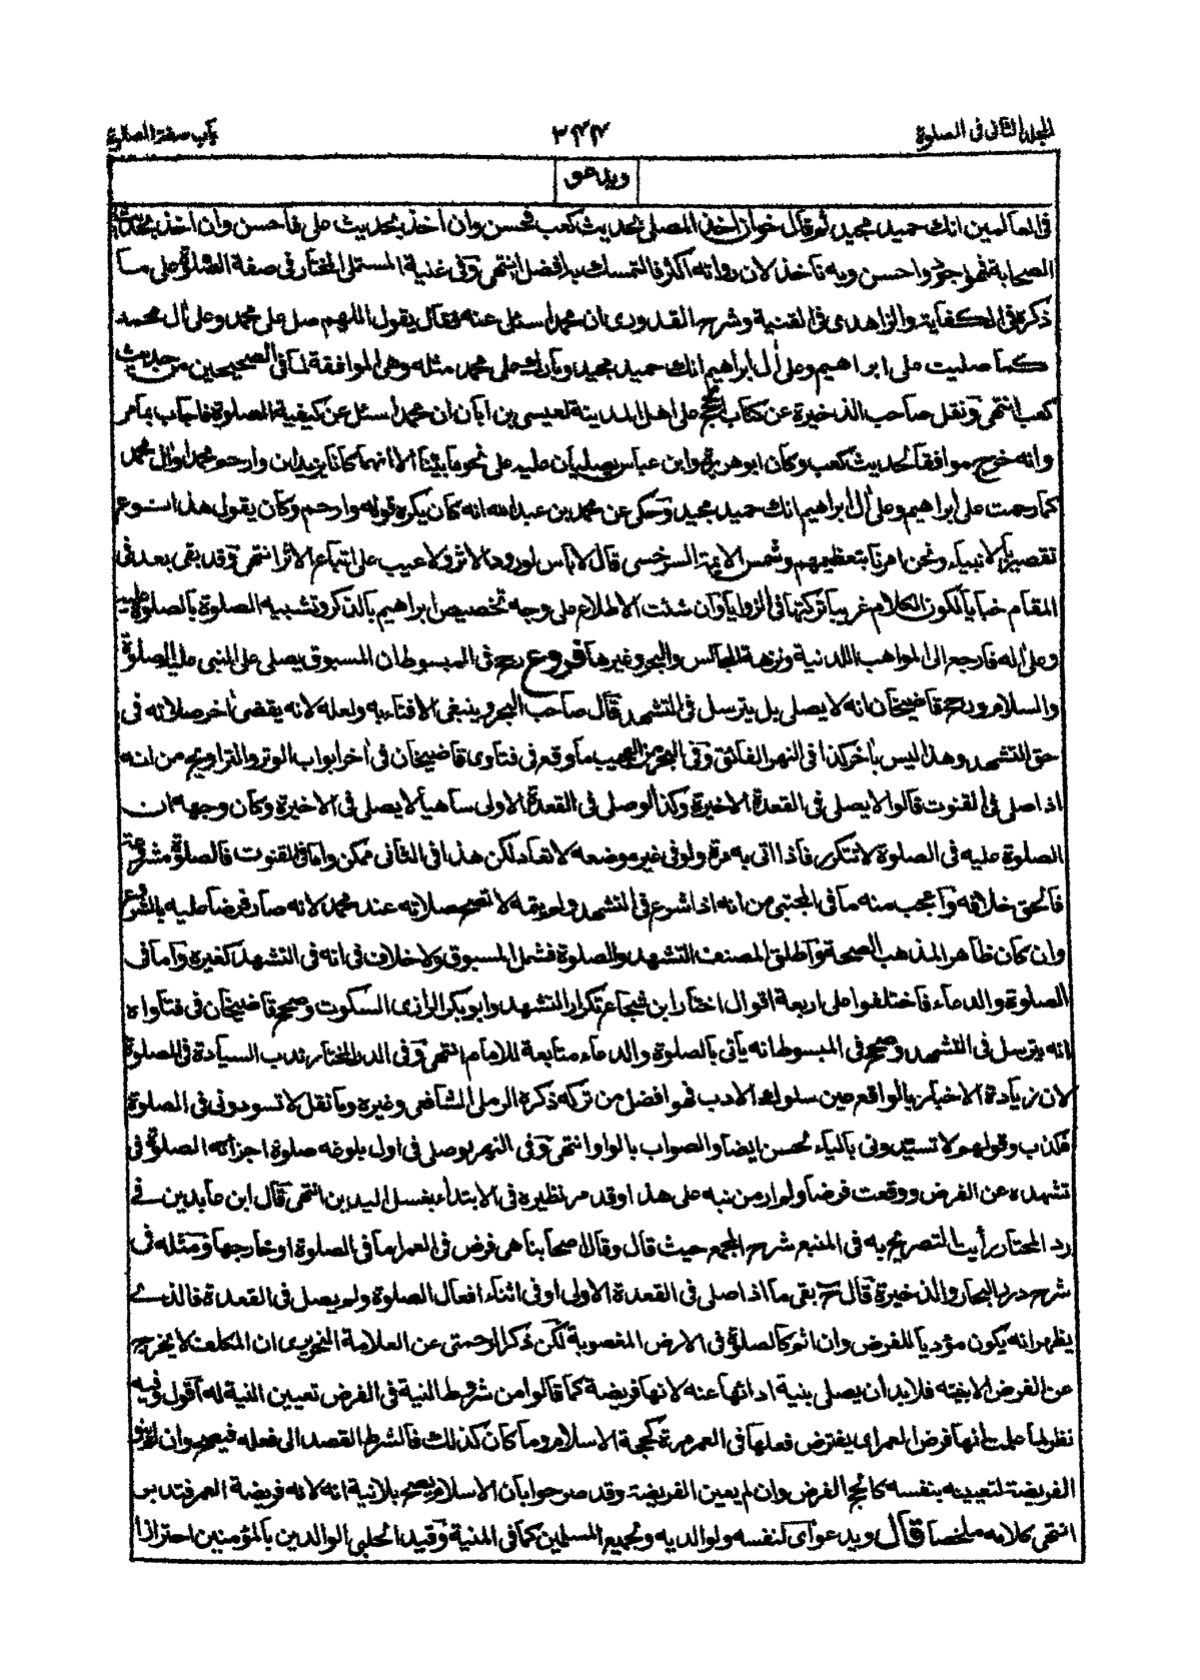 المجلد الثانى فى الصلوة
٢٧٧
باب صفة الصلوة
ويدعو
فى العالمين انك حميد مجيد ثم قال خواز اخذ المصلى بحديث كعب فحسن وان اخذ بحديث على فاحسن وان اخذ بحديث
الصحابة فهو اجود واحسن وبه ناخذ لان رواته اكثر فالتمسك به افضل انتهى وفى غنية المستملى المختار فى صفة الصلوة على ما
ذكره فى الكفاية والزاهدى فى القنية وشرح القدورى ان محمدا سئل عنه فقال يقول اللهم صل على محمد وعلى آل محمد
كما صليت على ابراهيم وعلى آل ابراهيم انك حميد مجيد وبارك على محمد مثله وهى الموافقة لما فى الصحيحين من حديث
كعب انتهى ونقل صاحب الذخيرة عن كتاب الحج على اهل المدينة لعيسى بن ابان ان محمدا سئل عن كيفية الصلوة فاجاب بما مر
وانه خرج موافقا لحديث كعب وكان ابو هريرة وابن عباس يصليان عليه على نحو ما بينا الا انهما كانا يزيدان وارحم محمدا وآل محمد
كما رحمت على ابراهيم وعلى آل ابراهيم انك حميد مجيد وحكى عن محمد بن عبد الله انه كان يكره قوله وارحم وكان يقول هذا نوع
تقصير بالانبياء ونحن امرنا بتعظيمهم وشمس الايمة السرخسى قال لا باس لورود الاثر ولا عيب على اتباع الاثر انتهى وقد بقى بعد فى
المقام خبايا لكون الكلام غريبا تركتها فى الزوايا وان شئت الاطلاع على وجه تخصيص ابراهيم بالذكر وتشبيه الصلوة بالصلوة عليه
وعلى آله فارجع الى المواهب اللدنية ونزهة المجالس والبحر وغيرها فروع رجح فى المبسوط ان المسبوق يصلى على النبى عليه الصلوة
والسلام ورجح قاضيخان انه لا يصلى بل يترسل فى التشهد قال صاحب البحر وينبغى الافتاء به ولعله لانه يقضى آخر صلاته فى
حق التشهد وهذا ليس بآخر كذا فى النهر الفائق وفى البحر من العجيب ما وقع فى فتاوى قاضيخان فى آخر ابواب الوتر والتراويح من انه
اذا صلى فى القنوت قالوا لا يصلى فى القعدة الاخيرة وكذا لو صلى فى القعدة الاولى ساهيا لا يصلى فى الاخيرة وكان وجهه ان
الصلوة عليه فى الصلوة لا تتكرر فاذا اتى به مرة ولو فى غير موضعه لا تعاد لكن هذا فى الثانى ممكن واما فى القنوت فالصلوة مشروعة
فالحق خلافه واعجب منه ما فى المجتبى من انه اذا شرع فى التشهد ولم يتمه لا تصح صلاته عند محمد لانه صار فرضا عليه بالشروع
وان كان ظاهر المذهب الصحة واطلق المصنف التشهد والصلوة فشمل المسبوق ولا خلاف فى انه فى التشهد كغيره واما فى
الصلوة والدعاء فاختلفوا على اربعة اقوال اختار ابن شجاع تكرار التشهد وابو بكر الرازى السكوت وصحح قاضيخان فى فتاواه
انه يترسل فى التشهد وصحح فى المبسوط انه يأتى بالصلوة والدعاء متابعة للامام انتهى وفى الدر المختار ندب السيادة فى الصلوة
لان زيادة الاخبار بالواقع عين سلوك الادب فهو افضل من تركه ذكره الرملى الشافعى وغيره وما نقل لا تسودونى فى الصلوة
فكذب وقولهم لا تستيدونى بالياء لحسن ايضا والصواب بالواو انتهى وفى النهر لو صلى فى اول بلوغه صلوة اجزأته الصلوة فى
تشهده عن الفرض ووقعت فرضا ولم ار من نبه على هذا وقد مر نظيره فى الابتداء بغسل اليدين انتهى قال ابن عابدين فى
رد المحتار رأيت التصريح به فى المنبع شرح المجمع حيث قال وقال اصحابنا هى فرض فى العمر اما فى الصلوة او خارجها ومثله فى
شرح درر البحار والذخيرة قال ح بقى ما اذا صلى فى القعدة الاولى او فى اثناء افعال الصلوة ولم يصل فى القعدة فالذى
يظهر انه يكون مؤديا للفرض وان اثم كالصلوة فى الارض المغصوبة لكن ذكر الرحمتى عن العلامة النحريرى ان المكلف لا يخرج
عن الفرض الا بنيته فلابد ان يصلى بنية ادائها عنه لانها فريضة كما قالوا من شروط النية فى الفرض تعيين النية له اقول وفيه
نظر لما علمت انها فرض العمر اى يفترض فعلها فى العمر مرة كحجة الاسلام وما كان كذلك فالشرط القصد الى فعله فيصح وان لم ينو
الفريضة لتعيينه بنفسه كالحج الفرض وان لم يعين الفريضة وقد صرحوا بان الاسلام يصح بلا نية انه لانه فريضة العمر فتدبر
انتهى كلامه ملخصا قال ويدعو اى لنفسه ولوالديه ولجميع المسلمين كما فى المنية وقيد الحلبى الوالدين بالمؤمنين احترازا